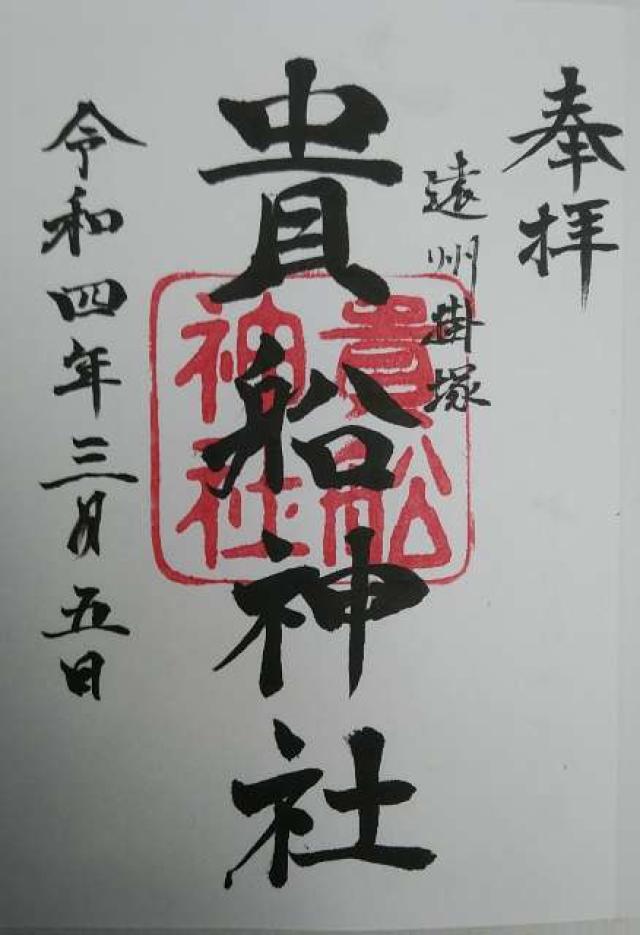 奉拝
遠州掛塚
貴船神社
貴船
神社
令和四年三月五日